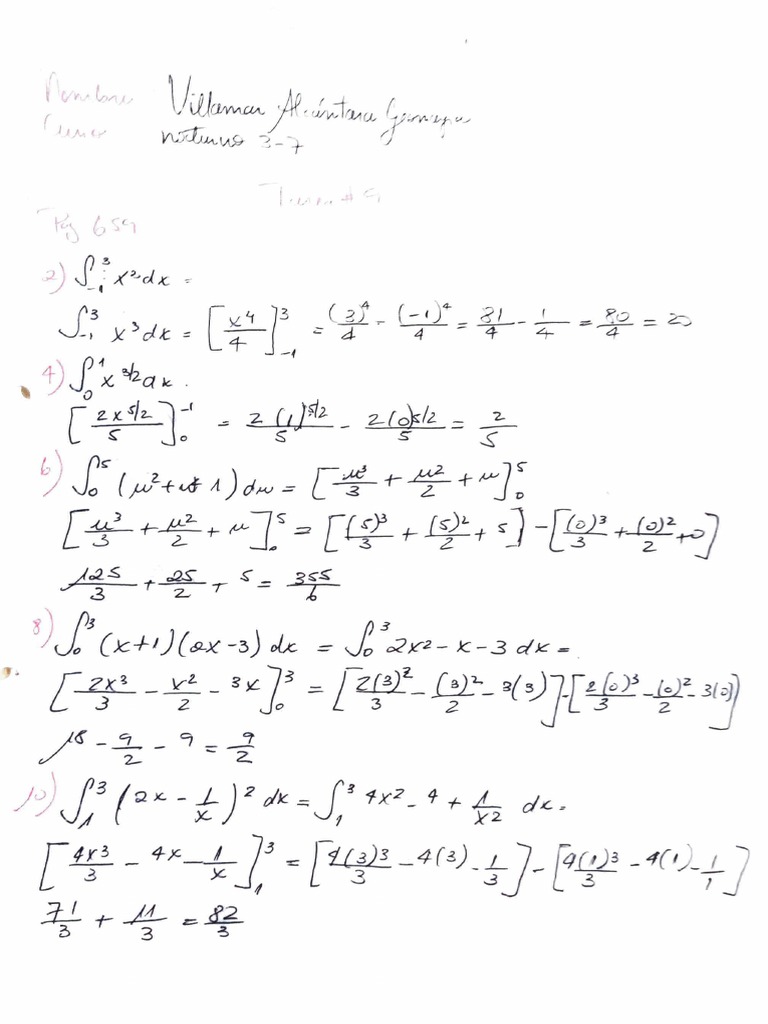 Nombre Villamar Alcántara
Curso nocturno 3-7
Pg 659
2) ∫₋₁³ x² dx =
∫₋₁³ x³ dx = [x⁴/4]₋₁³ = (3)⁴/4 - (-1)⁴/4 = 81/4 - 1/4 = 80/4 = 20
4) ∫₀¹ x^(3/2) dx.
[2x^(5/2)/5]₀⁻¹ = 2(1)^(5/2)/5 - 2(0)^(5/2)/5 = 2/5
6) ∫₀⁵ (u² + u + 1) du = [u³/3 + u²/2 + u]₀⁵
[u³/3 + u²/2 + u]₀⁵ = [(5)³/3 + (5)²/2 + 5] - [(0)³/3 + (0)²/2 + 0]
125/3 + 25/2 + 5 = 355/6
8) ∫₀³ (x+1)(2x-3) dx = ∫₀³ 2x² - x - 3 dx =
[2x³/3 - x²/2 - 3x]₀³ = [2(3)²/3 - (3)²/2 - 3(3)] - [2(0)³/3 - (0)²/2 - 3(0)]
18 - 9/2 - 9 = 9/2
10) ∫₁³ (2x - 1/x)² dx = ∫₁³ 4x² - 4 + 1/x² dx =
[4x³/3 - 4x - 1/x]₁³ = [4(3)³/3 - 4(3) - 1/3] - [4(1)³/3 - 4(1) - 1/1]
71/3 + 11/3 = 82/3